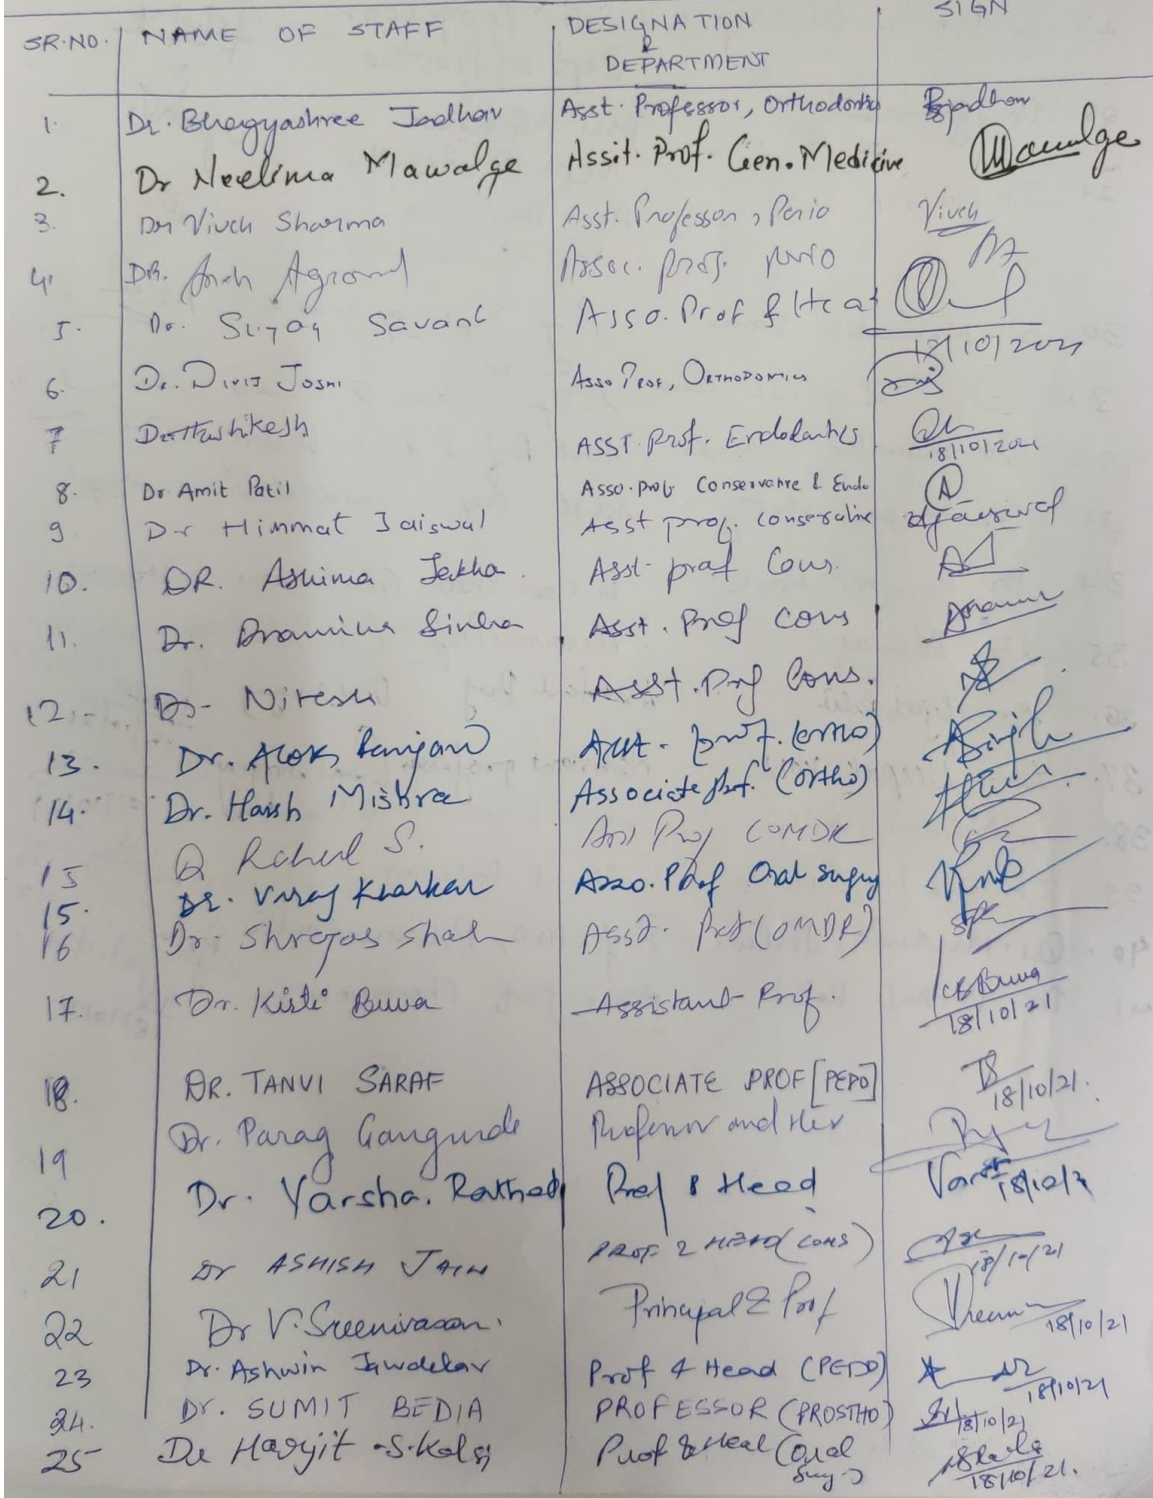 SR.NO. NAME OF STAFF DESIGNATION & DEPARTMENT SIGN
1. Dr. Bhagyashree Jadhav Asst. Professor, Orthodontics Bjadhav
2. Dr Neelima Mawalge Assit. Prof. Gen. Medicine Mawalge
3. Dr Vivek Sharma Asst. Professor, Perio Vivek
4. DR. Agrawal Assoc. prof. perio
5. Dr. Suyog Savant Asso. Prof & Head 18/10/2021
6. Dr. Divij Joshi Asso Prof, Orthodontics
7 Dr Hrushikesh ASST. Prof. Endodontics 18/10/2021
8. Dr Amit Patil Asso. prof Conservative & Endo A
9 Dr Himmat Jaiswal Asst prof. conservative Jaiswal
10. DR. Ashima Jakha. Asst- prof Cons.
11. Dr. Sinha Asst. Prof cons
12.- Dr- Nitesh Asst. Prof Cons.
13. Dr. Alok Ranjan Asst. prof. (ortho) Singh
14. Dr. Harsh Mishra Associate prof. (Ortho)
15 Rahul S. Prof
15. Dr. Viraj Kharkar Asso. Prof Oral surgery
16 Dr. Shreyas Shah Asst. Prof (OMDR)
17. Dr. Kirti Buwa Assistant Prof. KBBuwa 18/10/21
18. DR. TANVI SARAF ASSOCIATE PROF [PEDO] TS 18/10/21.
19 Dr. Parag Gangurde Professor and
20. Dr. Varsha. Rathod Prof & Head 18/10/21
21 Dr ASHISH JAIN PROF & HEAD (CONS) 18/10/21
22 Dr V. Sreenivasan. Principal & Prof 18/10/21
23 Dr. Ashwin Jawdekar Prof & Head (PEDO) 18/10/21
24. Dr. SUMIT BEDIA PROFESSOR (PROSTHO) 18/10/21
25 Dr Harjit .S. Kalsi Prof & Head (Oral Surg.) 18/10/21.